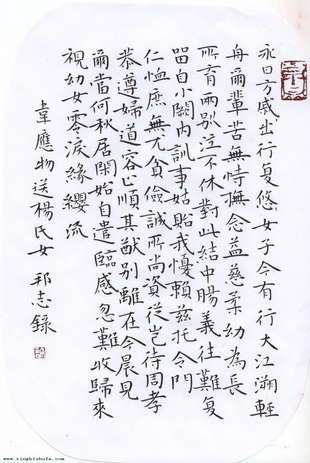 永日方戚出行复悠女子今有行大江溯輕
舟爾輩苦無恃撫念益慈柔幼為長
所育兩別泣不休對此結中腸義往難复
留自小闕內訓事姑貽我憂賴茲托令門
仁恤庶無尤貧儉誠所尚資從豈待周孝
恭遵婦道容止順其猷別離在今晨見
爾當何秋居閑始自遣臨感忽難收歸來
視幼女零淚緣纓流
韋應物送楊氏女 邦志錄